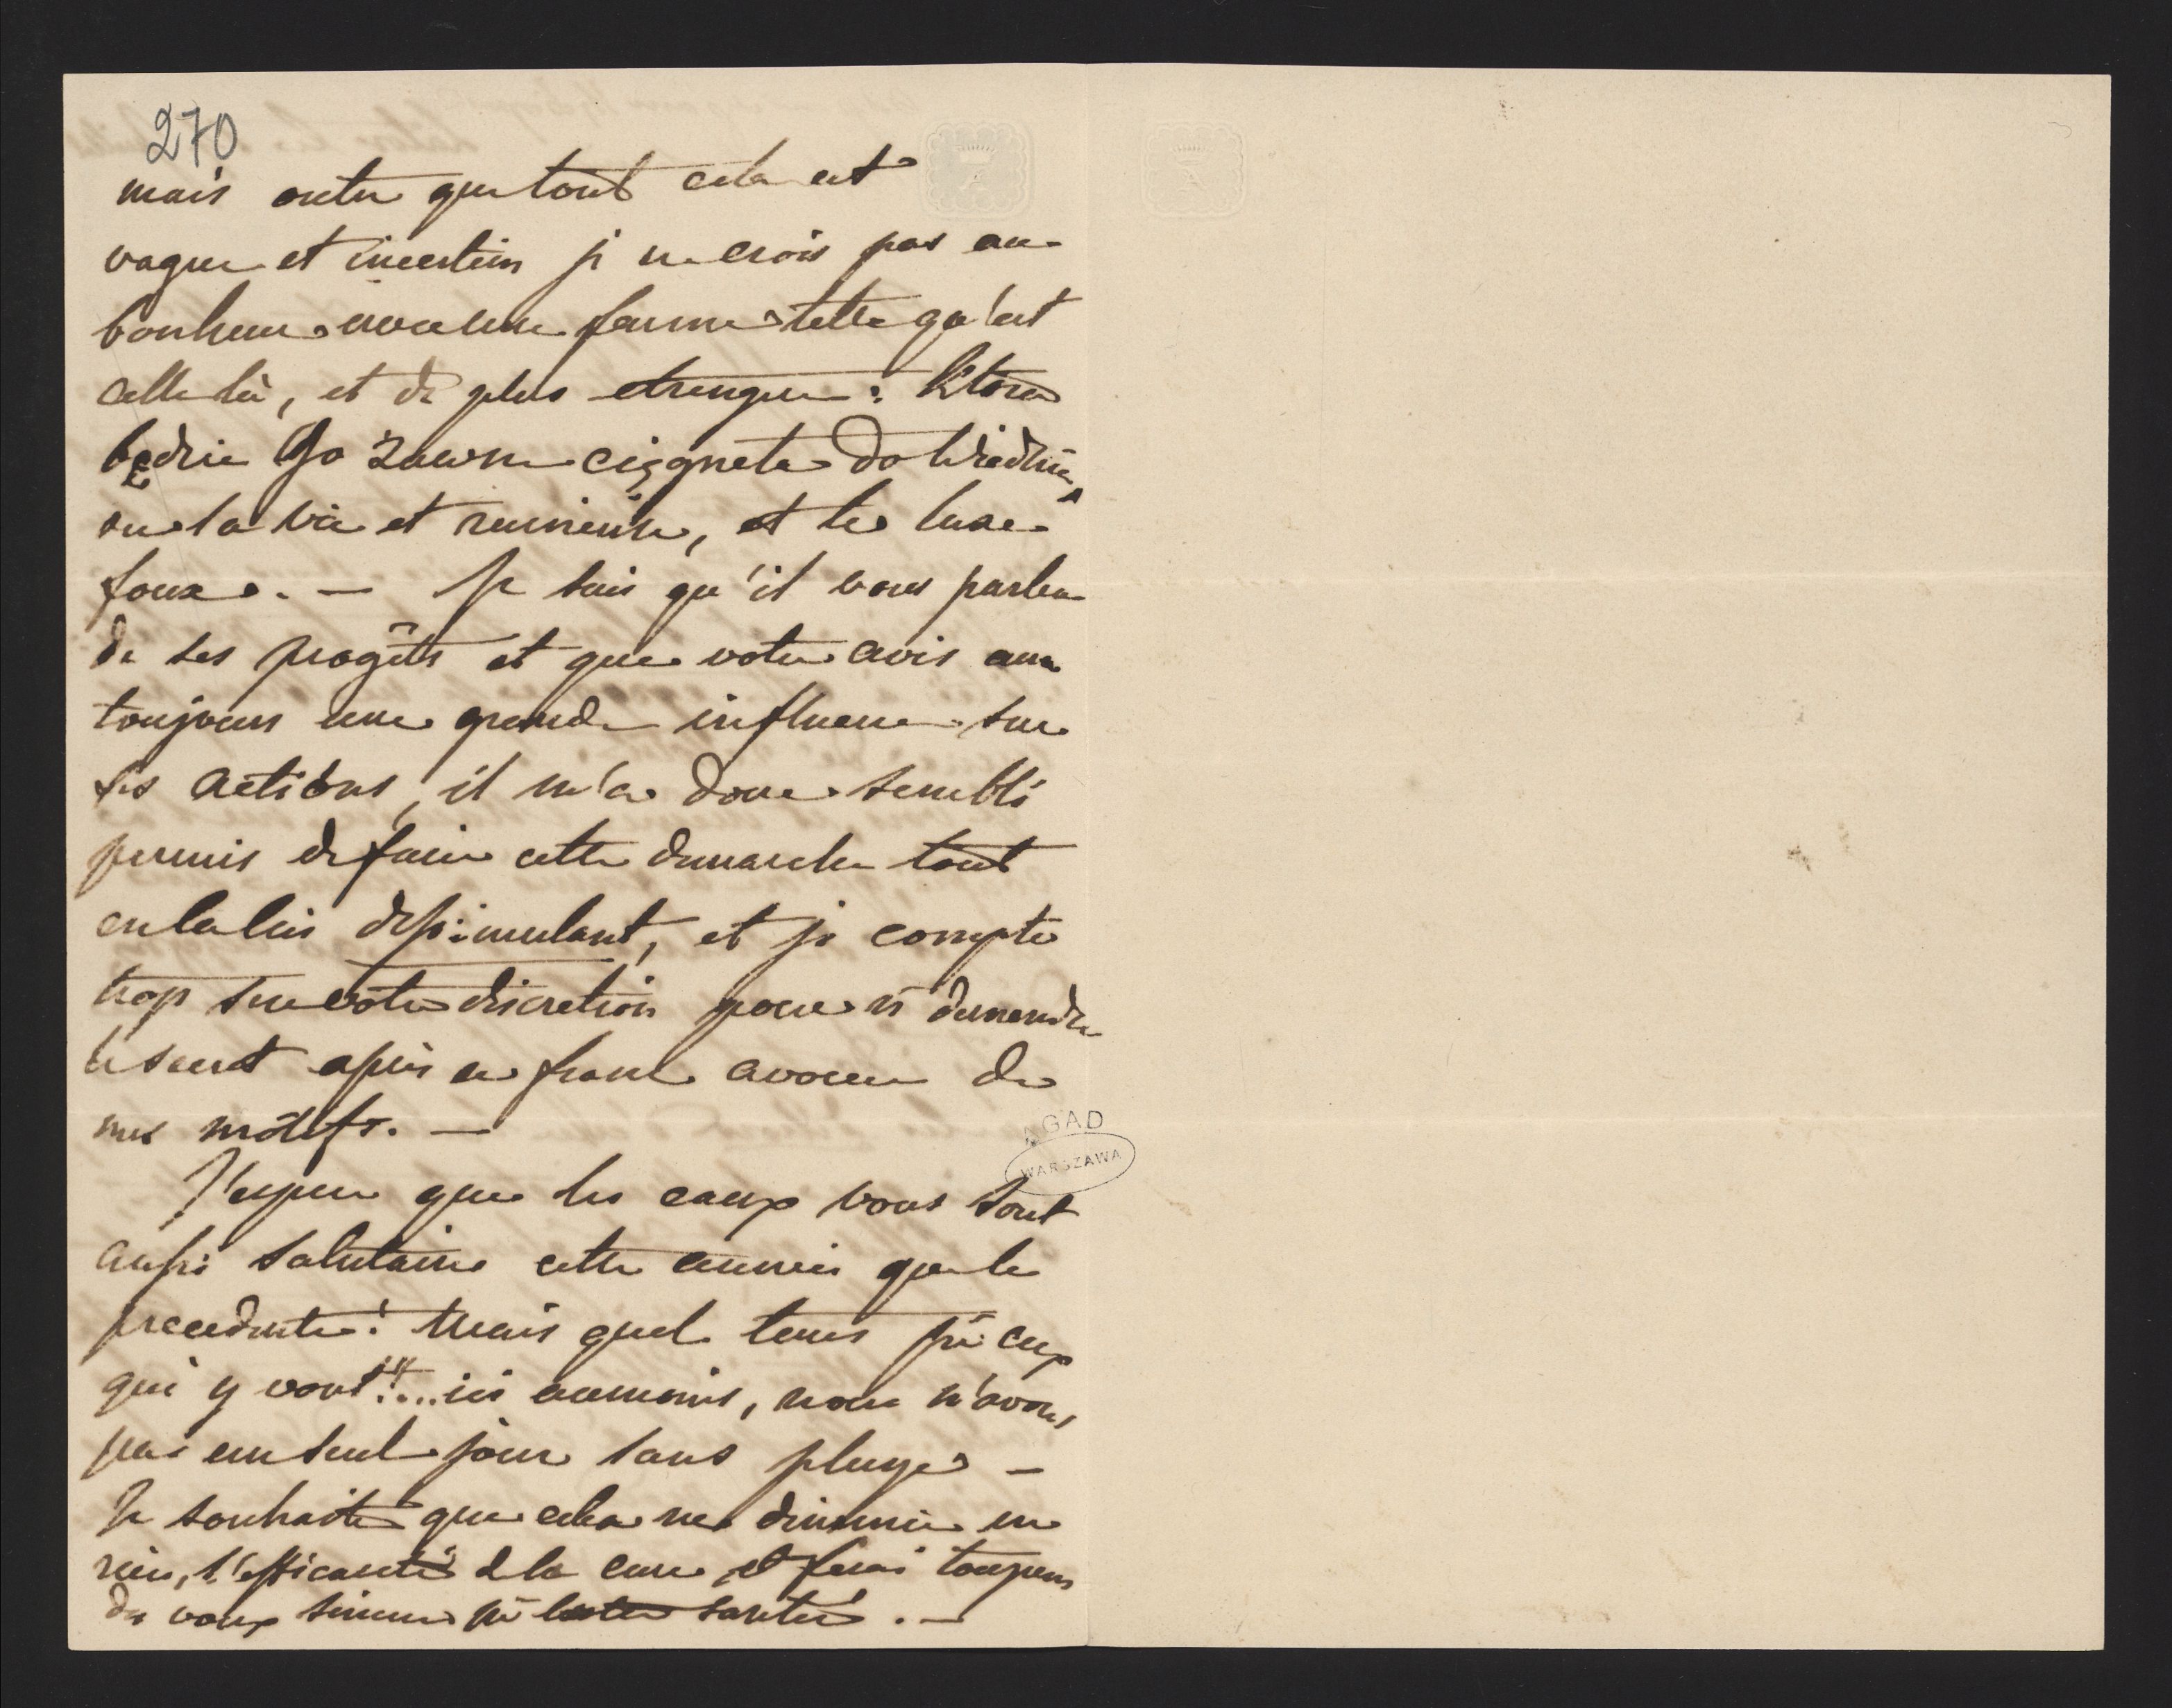 270
mais outre que tout cela est
vague et incertain je ne crois pas au
bonheur avec une femme telle qu'est
celle là, et de plus etrangere: która
będzie Go zawsze ciągnęła do Wiednia,
ou la vie est ruineuse, et le luxe
foux. — Je sais qu'il vous parlera
de ses progêts et que votre avis aura
toujours une grande influence sur
ses actions, il m'a donc semblé
permis de faire cette demarche tout
en la lui dissimulant, et je compte
trop sur votre discretion pour v. demander
le secret après ce franc avoeu de
mes motifs. —
J'espere que les eaux vous sont
aussi salutaires cette année que la
precedente! Mais quel tems pr ceux
qui y vont!!!... ici aumoins, nous n'avons
pas un seul jour sans pluye —
Je souhaite que cela ne diminue en
rien, l'efficacité d la cure et ferai toujours
des voeux sinceres pr votre santé. —
AGAD
WARSZAWA